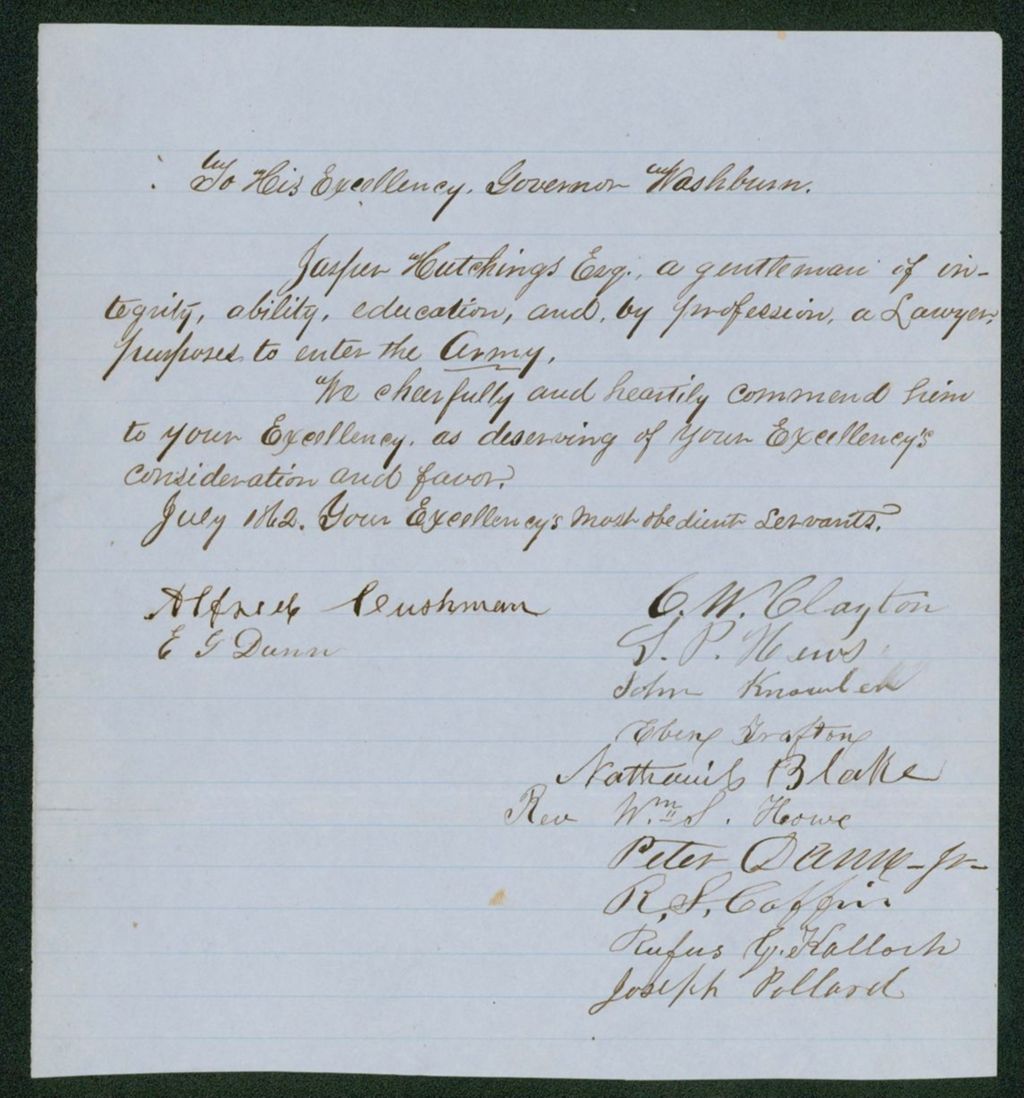 To His Excellency, Governor Washburn.
Jasper Hutchings Esq., a gentleman of in-
tegrity, ability, education, and, by profession, a Lawyer,
purposes to enter the Army.
We chearfully and heartily commend him
to your Excellency, as deserving of your Excellency's
consideration and favor.
July 1862. Your Excellency's most obedient Servants.
Alfred Cushman
E G Dunn
C. W. Clayton
S. P. Hews
John Knowlen
Eben Grafton
Nathaniel Blake
Rev Wm S. Howe
Peter Jr
R. S. Coffin
Rufus G. Kalloch
Joseph Pollard